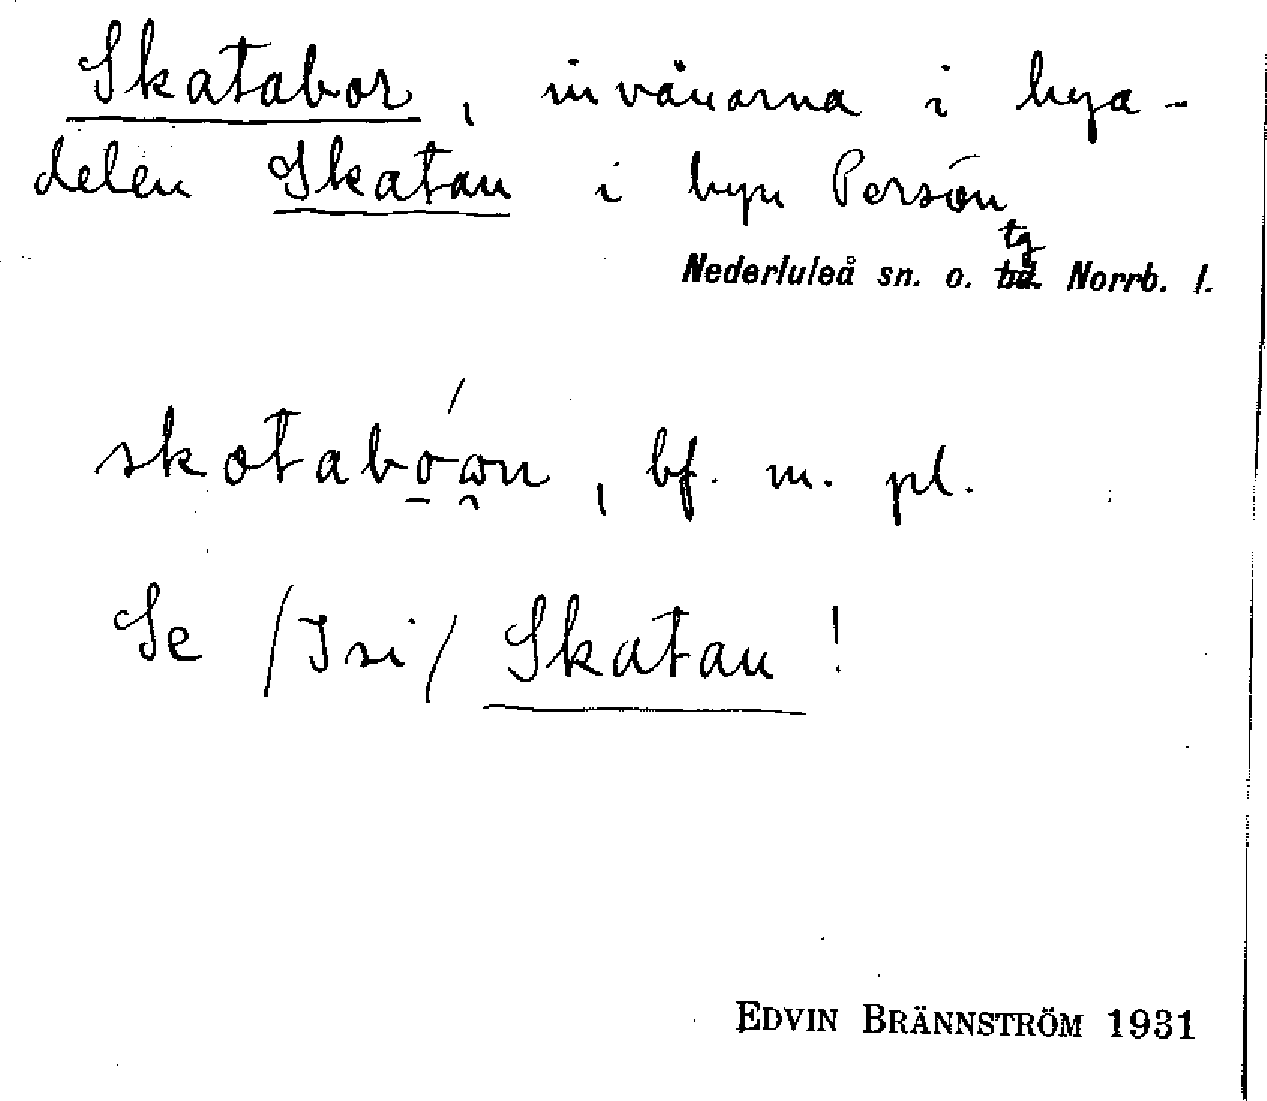 Skatabor, invånarna i bya-
delen Skatan i byn Persön
tg
Nederluleå sn. o. hd. Norrb. l.
bf. m. pl.
Se /Isi/ Skatan!
EDVIN BRÄNNSTRÖM 1931